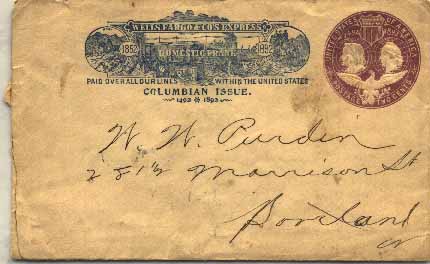 WELLS FARGO & CO'S EXPRESS
1852 1892
DOMESTIC FRANK
PAID OVER ALL OUR LINES WITHIN THE UNITED STATES
COLUMBIAN ISSUE.
1492 1892
UNITED STATES OF AMERICA
1492 1892
TWO CENTS
W. W. Purdin
281½ Morrison St
Portland